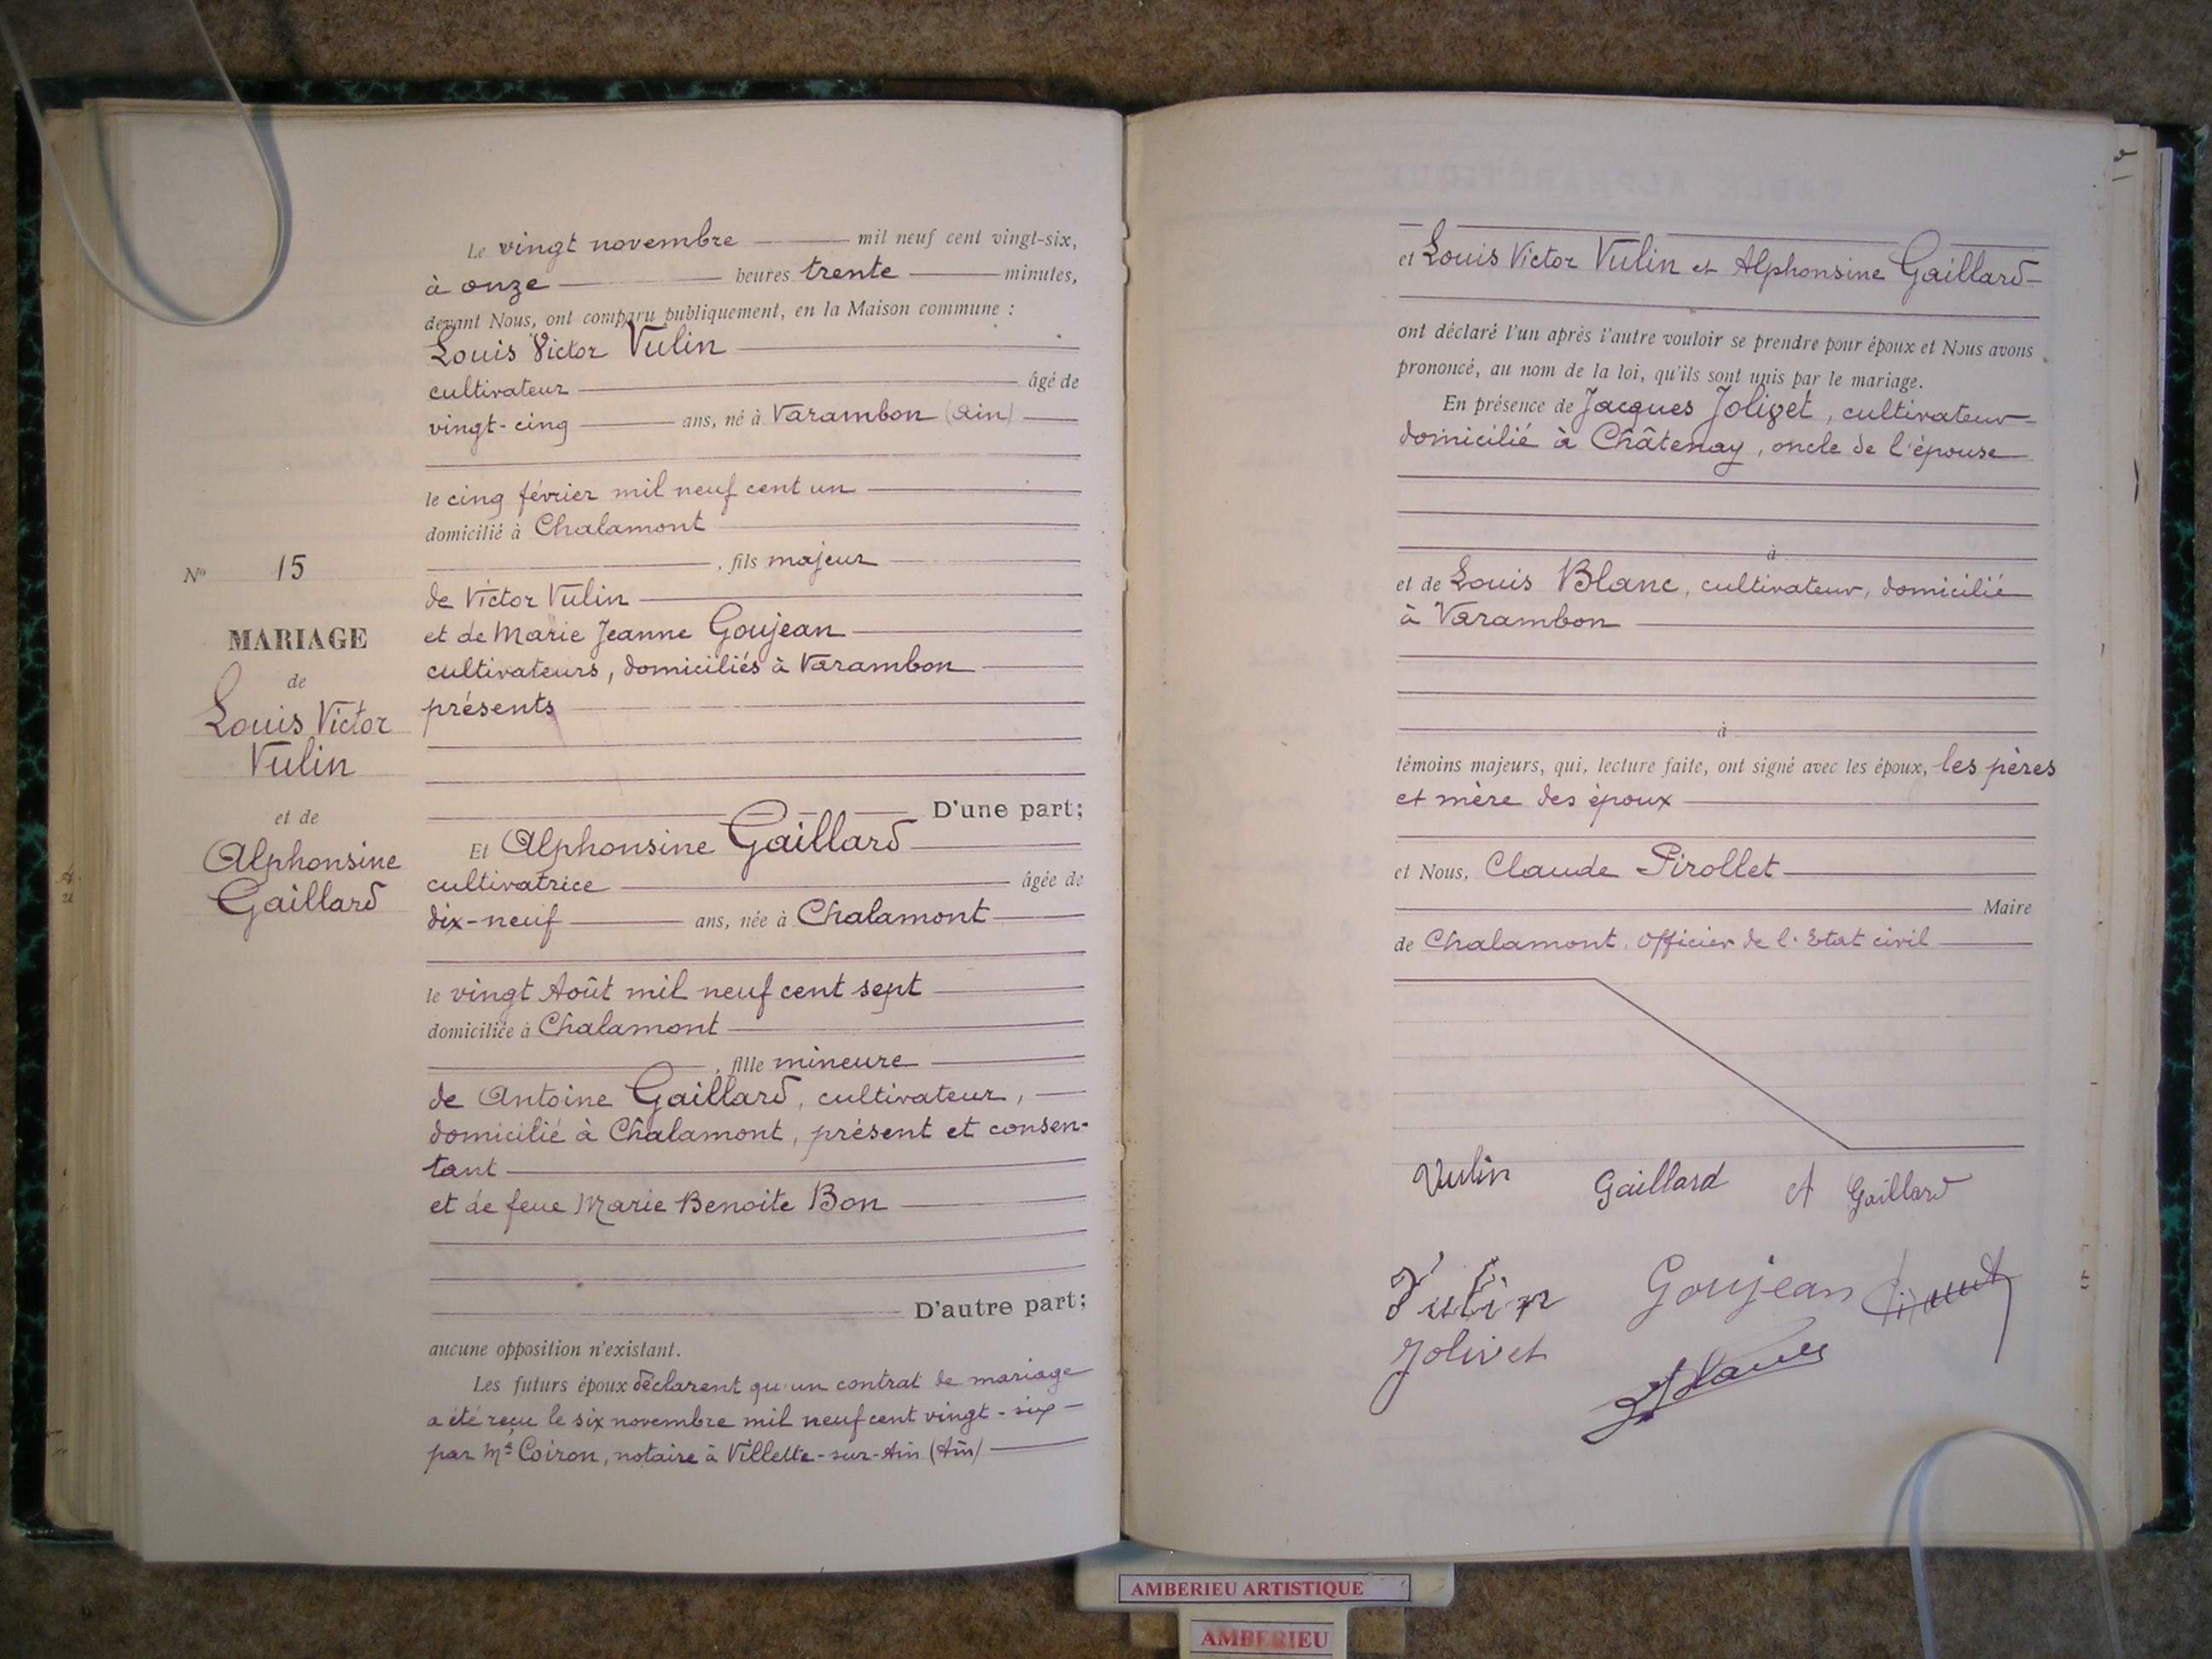 N° 15
MARIAGE
de
Louis Victor
Vulin
et de
Alphonsine
Gaillard
Le vingt novembre mil neuf cent vingt-six,
à onze heures trente minutes,
devant Nous, ont comparu publiquement, en la Maison commune :
Louis Victor Vulin
cultivateur âgé de
vingt-cinq ans, né à Varambon (Ain)
le cinq février mil neuf cent un
domicilié à Chalamont
, fils majeur
de Victor Vulin
et de Marie Jeanne Goujean
cultivateurs, domiciliés à Varambon
présents
D'une part;
Et Alphonsine Gaillard
cultivatrice âgée de
dix-neuf ans, née à Chalamont
le vingt Août mil neuf cent sept
domiciliée à Chalamont
, fille mineure
de Antoine Gaillard, cultivateur,
domicilié à Chalamont, présent et consen-
tant
et de feue Marie Benoite Bon
D'autre part;
aucune opposition n'existant.
Les futurs époux déclarent qu'un contrat de mariage
a été reçu le six novembre mil neuf cent vingt-six
par Me Coiron, notaire à Villette-sur-Ain (Ain)
et Louis Victor Vulin et Alphonsine Gaillard
ont déclaré l'un après l'autre vouloir se prendre pour époux et Nous avons
prononcé, au nom de la loi, qu'ils sont unis par le mariage.
En présence de Jacques Jolivet, cultivateur
domicilié à Châtenay, oncle de l'épouse
à
et de Louis Blanc, cultivateur, domicilié
à Varambon
à
témoins majeurs, qui, lecture faite, ont signé avec les époux, les pères
et mère des époux
et Nous, Claude Pirollet
Maire
de Chalamont, Officier de l'Etat civil
Vulin Gaillard A Gaillard
Vulin Goujean
Jolivet
AMBERIEU ARTISTIQUE
AMBERIEU